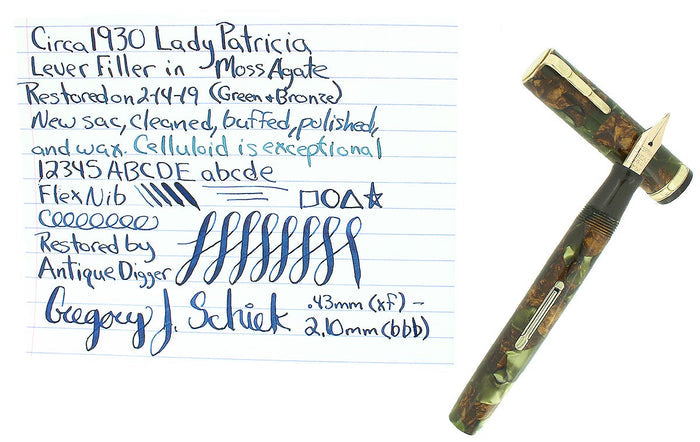 Circa 1930 Lady Patricia
Lever Filler in Moss Agate
Restored on 2-14-19 (Green + Bronze)
New sac, cleaned, buffed, polished,
and wax. Celluloid is exceptional
12345 ABCDE abcde
Flex Nib
Restored by
Antique Digger
Gregory J. Schiek .43mm (xf) -
2.10mm (bbb)